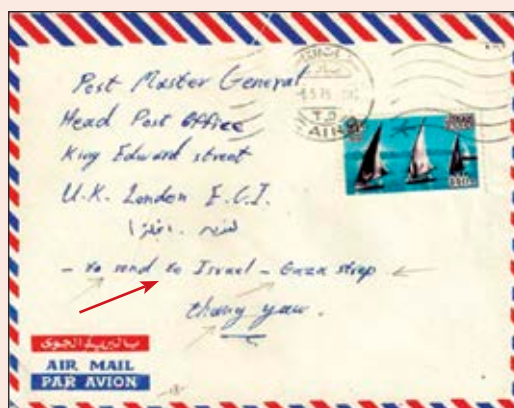 Post Master General
Head Post Office
King Edward street
U.K. London E.C.I.
لندن . انجلترا
- to send to Israel - Gaza strep
thany yaw.
بالبريد الجوى
AIR MAIL
PAR AVION
T.D
CAIRO